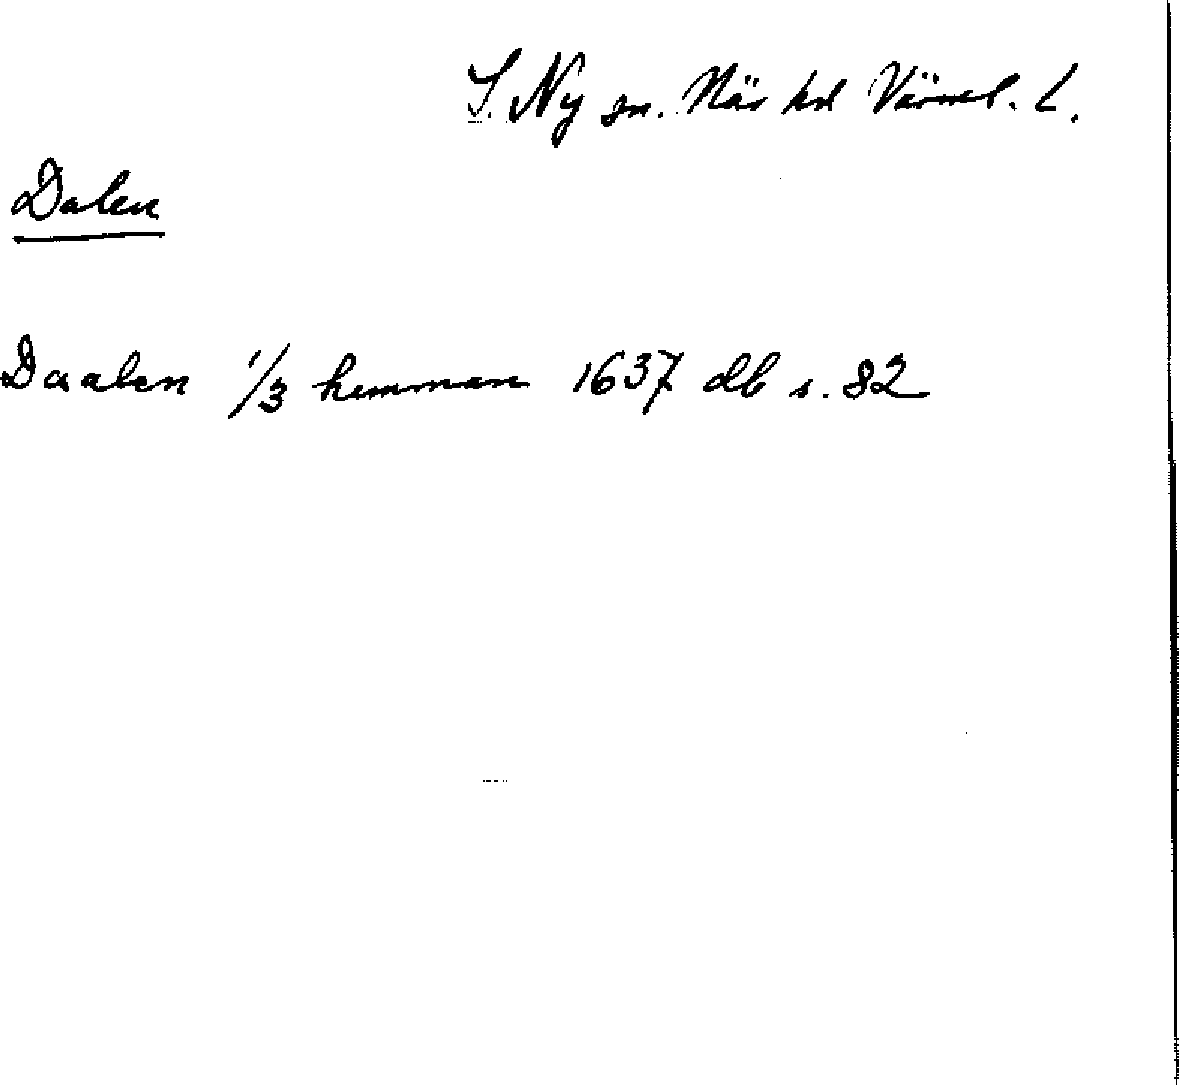 S. Ny sn. Näs hd Värml. l.
Dalen
Daalen 1/3 hemman 1637 db s. 82